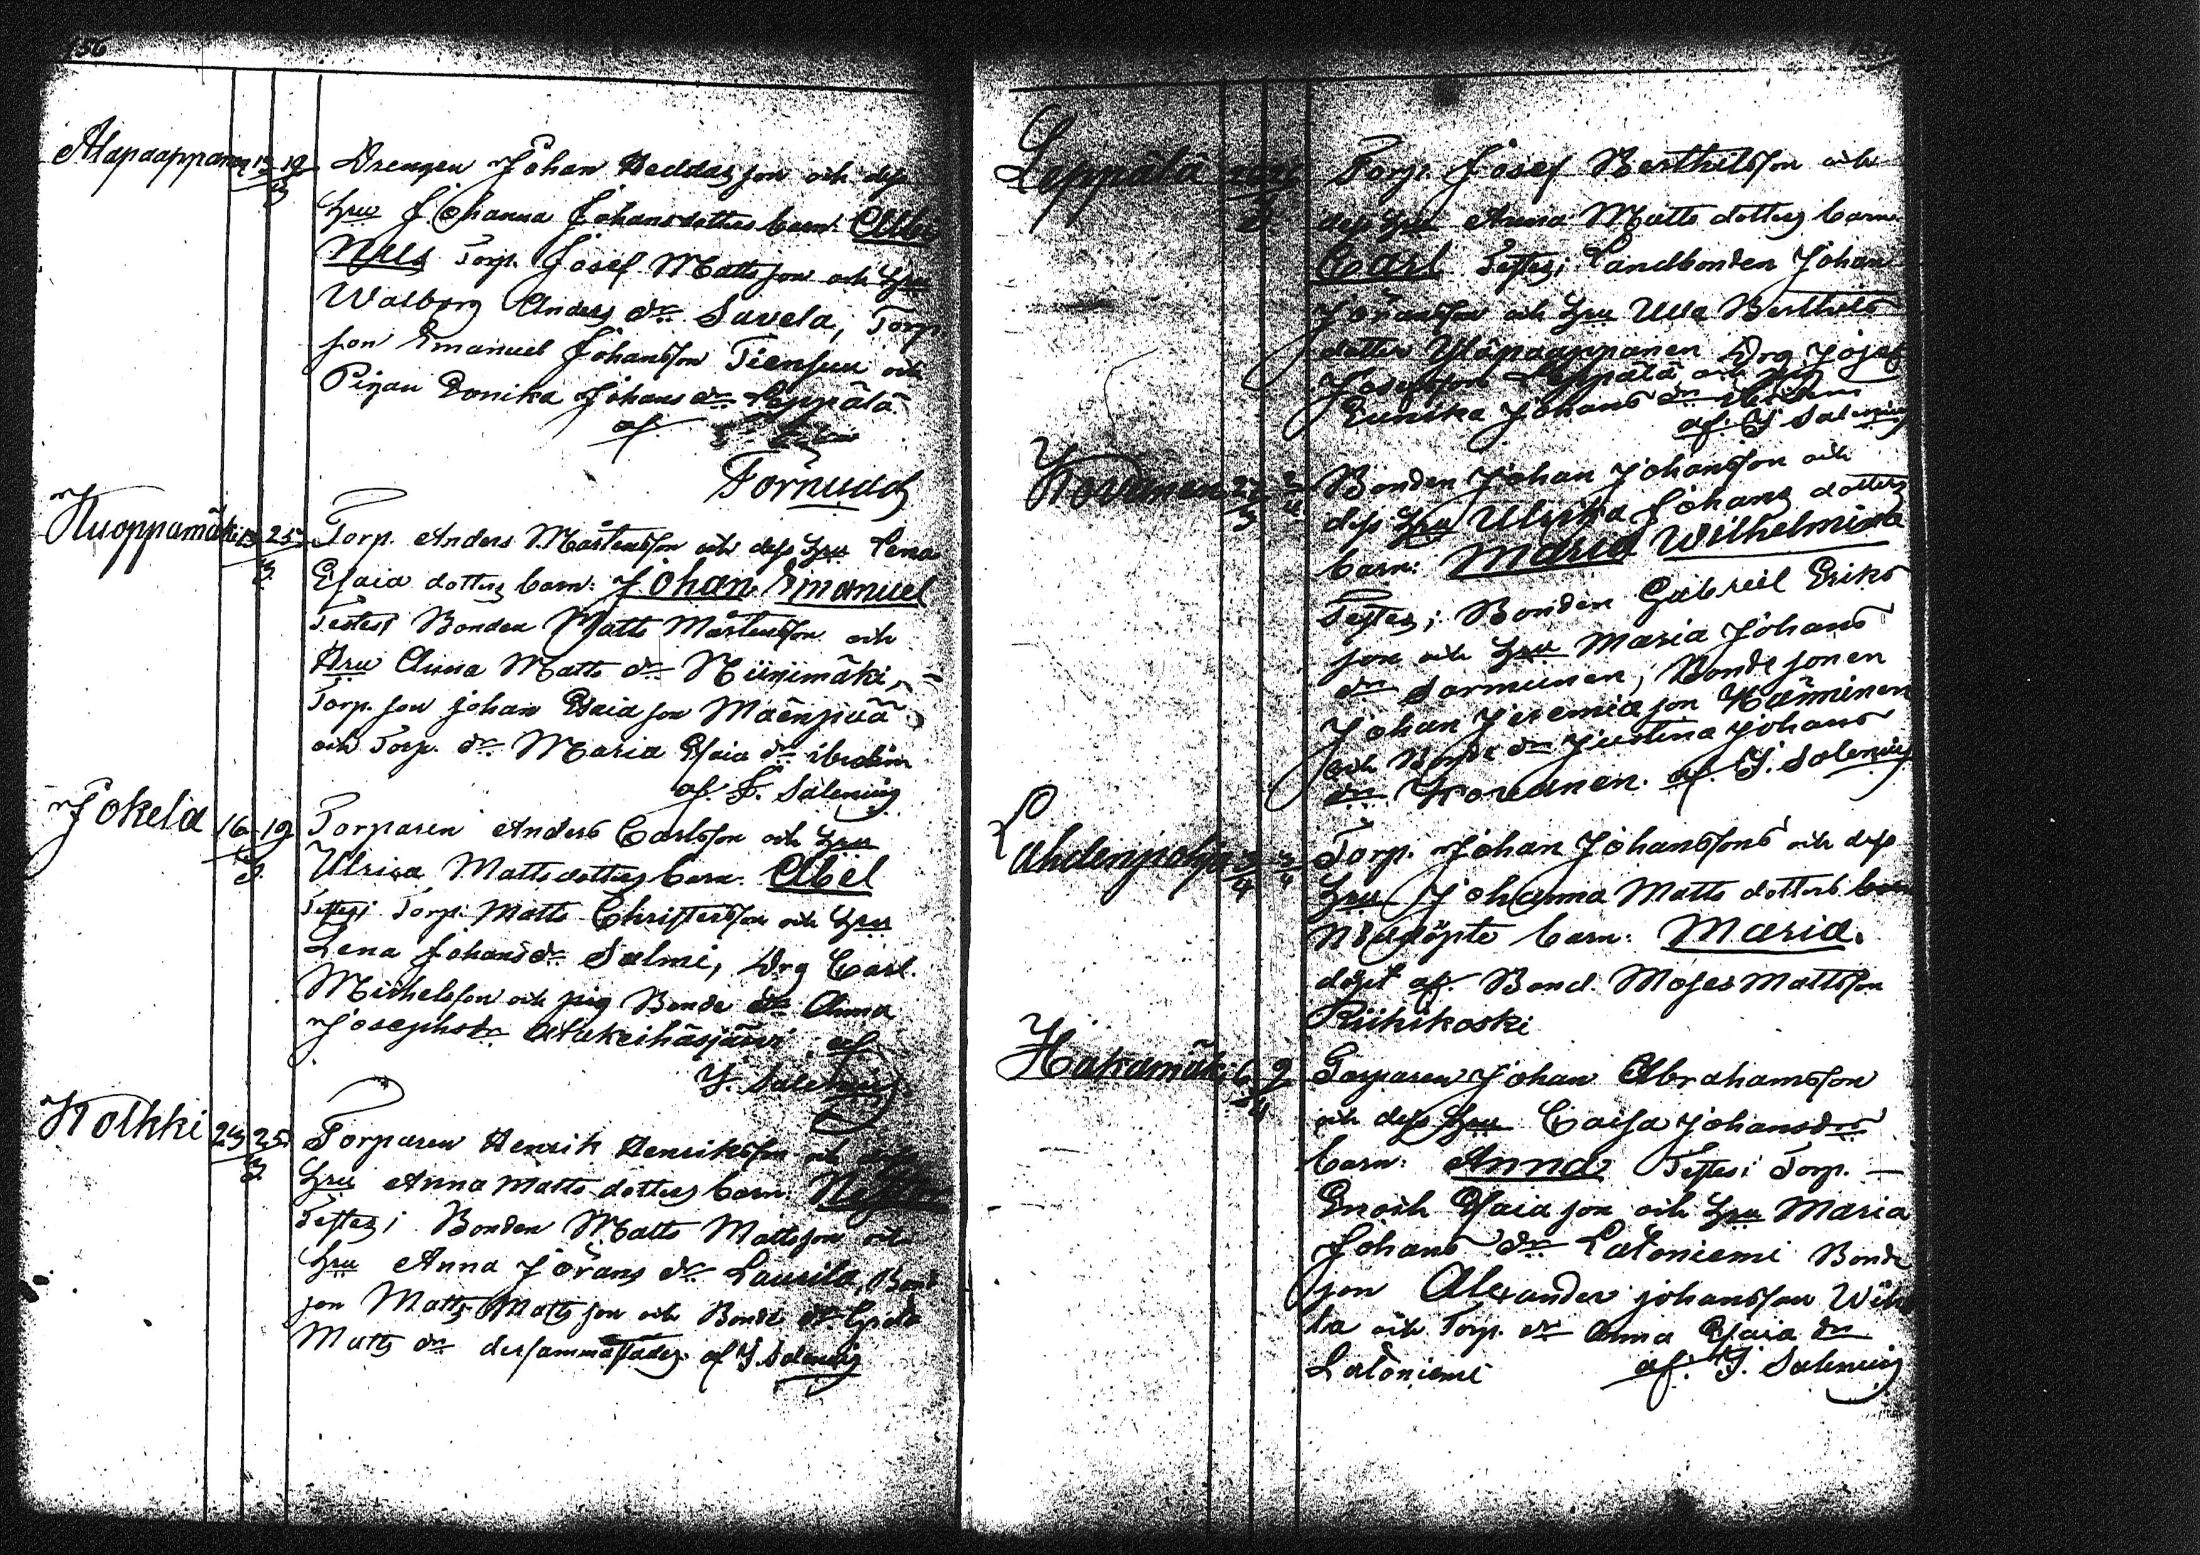 156
Alapaappanen 13 19 Drengen Johan Heddasson och dess
3 hru Johanna Johansdotters barn:
Nils Torp. Josef Mattsson och hru
Walborg Anders dr Savela, Torp.
son Emanuel Johansson Tiensuu och
Pigan Eonika Johans dr Leppälä
af
Törnudd
Kuoppamäki 13 25 Torp. Anders Mårtensson och dess hru Lena
3 Esaia dotters barn: Johan Emanuel
Testes; Bonden Matts Mårtensson och
Hru Anna Matts dr Niinimäki,
Torp. son johan Esaia son Mäenpää
och Torp. dr Maria Esaia dr ibidem
af. J. Salenius
Jokela 16 19 Torparen Anders Carlsson och hru
3 Ulrica Mattsdotters barn: Abel
Testes; Torp. Matts Christersson och hru
Lena Johans dr Salmi, Drg Carl
Michelsson och pig Bonde dr Anna
Josephsdr Alakeihäsjärvi af
J. Salenius
Kolkki 23 25 Torparen Henrik Henriksson och
3 hru Anna Matts dotters barn:
Testes; Bonden Matts Mattsson och
hru Anna Jörans dr Laurila, Bond
son Matts Matts son och Bonde dr
Matts dr dersammastädes. af J. Salenius
Leppälä Torp. Josef Berthilsson och
3 dess hru Anna Matts dotters barn
Carl Testes; Landbonden Johan
Jöransson och hru Ulla Berthels
dotter Yläpaappanen Drg Josef
Josefsson Leppälä och
Eunika Johans dr ibidem
af. J Salenius
Kovanen 27 2 Bonden Johan Johansson och
3 4 dess hru Ulrika Johans dotters
barn: Maria Wilhelmina
Testes; Bonden Gabriel Eriks
son och hru Maria Johans
dr Sormunen, Bonde sonen
Johan Jeremia son Hänninen
och Bonde dr Justina Johans
dr Kovanen. af. J. Salenius
Lahdenpohja 3 3 Torp. Johan Johanssons och dess
4 4 hru Johanna Matts dotters
nöddöpte barn: Maria.
döpt af Bond. Moses Mattsson
Riihikoski
Hakamäki 6 9 Torparen Johan Abrahamsson
4 och dess hru Caisa Johansdrs
barn: Anna Testes; Torp. —
Enoch Esaia son och hru Maria
Johans dr Latoniemi Bonde
son Alexander johansson
la och Torp. dr Anna Esaia dr
Latoniemi af. J. Salenius